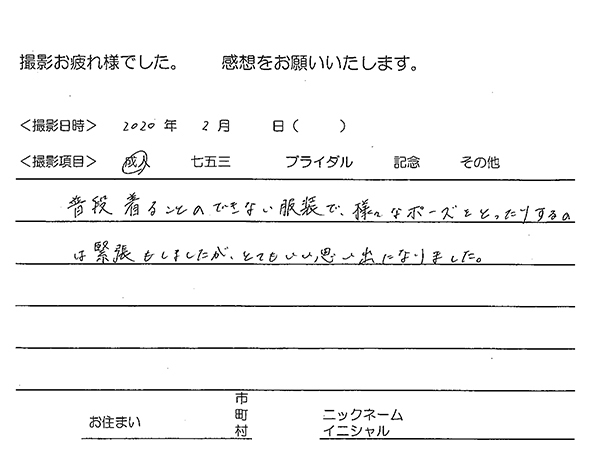 撮影お疲れ様でした。　感想をお願いいたします。
＜撮影日時＞　2020 年　2 月　日（　）
＜撮影項目＞　成人　七五三　ブライダル　記念　その他
普段着ることのできない服装で、様々なポーズをとったりするの
は緊張もしましたが、とてもいい思い出になりました。
お住まい　市町村　ニックネーム
イニシャル